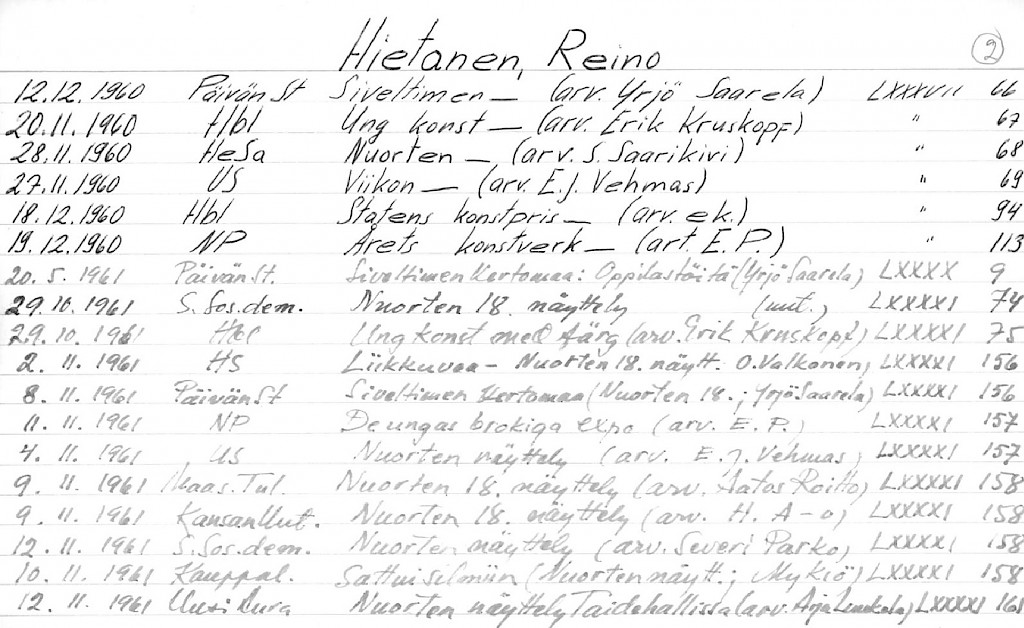 Hietanen, Reino 2
12.12.1960 PäivänSt Siveltimen — (arv. Yrjö Saarela) LXXXVII 66
20.11.1960 Hbl Ung konst — (arv. Erik Kruskopf) " 67
28.11.1960 HeSa Nuorten — (arv. S. Saarikivi) " 68
27.11.1960 US Viikon — (arv. E.J. Vehmas) " 69
18.12.1960 Hbl Statens konstpris — (arv. ek.) " 94
19.12.1960 NP Årets konstverk — (art. E.P.) " 113
20.5.1961 PäivänSt. Siveltimen kertomaa: Oppilastöitä (Yrjö Saarela) LXXXX 9
29.10.1961 S.Sos.dem. Nuorten 18. näyttely (uut.) LXXXXI 74
29.10.1961 Hbl Ung konst med färg (arv. Erik Kruskopf) LXXXXI 75
2.11.1961 HS Liikkuvaa - Nuorten 18. näytt. O. Valkonen) LXXXXI 156
8.11.1961 PäivänSt Siveltimen kertomaa (Nuorten 18.; Yrjö Saarela) LXXXXI 156
11.11.1961 NP De ungas brokiga expo (arv. E.P.) LXXXXI 157
4.11.1961 US Nuorten näyttely (arv. E.J. Vehmas) LXXXXI 157
9.11.1961 Maas.Tul. Nuorten 18. näyttely (arv. Aatos Roitto) LXXXXI 158
9.11.1961 KansanUut. Nuorten 18. näyttely (arv. H. A-o) LXXXXI 158
12.11.1961 S.Sos.dem. Nuorten näyttely (arv. Severi Parko) LXXXXI 158
10.11.1961 Kauppal. Sattui silmiin (Nuorten näytt.; Mykiö) LXXXXI 158
12.11.1961 Uusi Aura Nuorten näyttely Taidehallissa (arv. Arja) LXXXXI 161